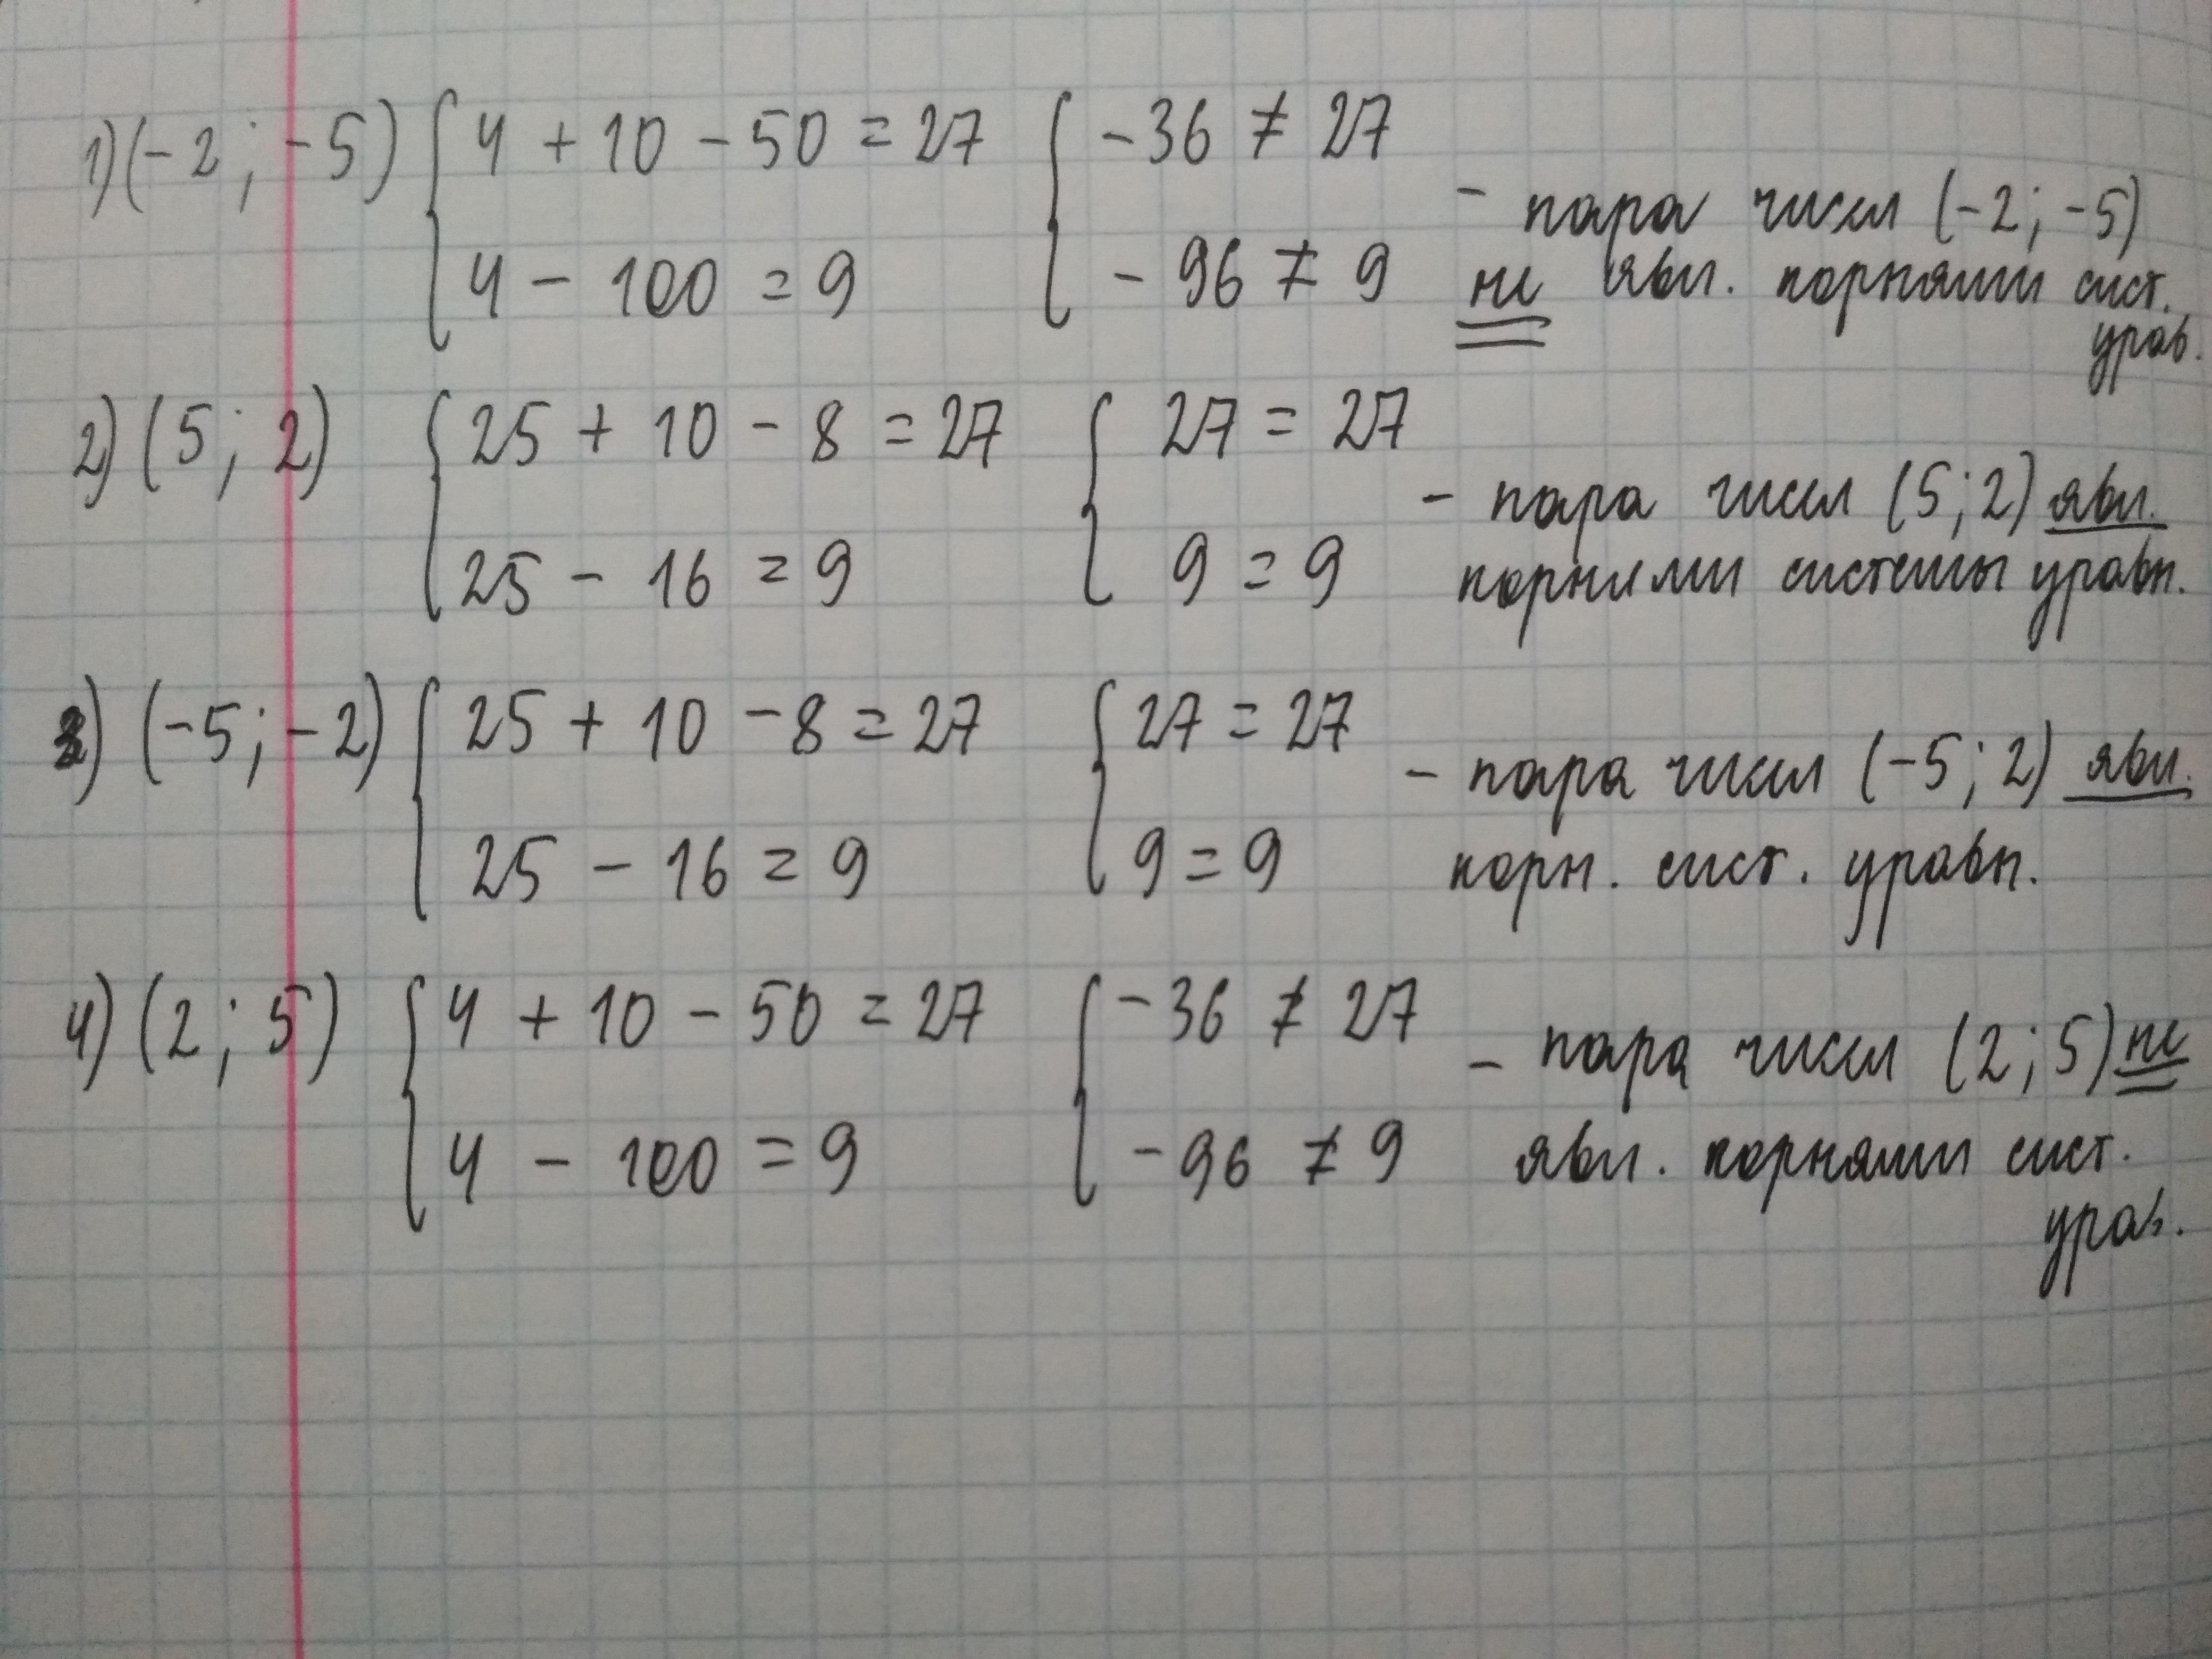 1) (-2; -5) { 4 + 10 - 50 = 27 { -36 ≠ 27
4 - 100 = 9 - 96 ≠ 9
- пара чисел (-2; -5)
не явл. корнями сист.
урав.
2) (5; 2) { 25 + 10 - 8 = 27 { 27 = 27
25 - 16 = 9 9 = 9
- пара чисел (5; 2) явл.
корнями системы уравн.
3) (-5; -2) { 25 + 10 - 8 = 27 { 27 = 27
25 - 16 = 9 9 = 9
- пара чисел (-5; 2) явл.
корн. сист. уравн.
4) (2; 5) { 4 + 10 - 50 = 27 { -36 ≠ 27
4 - 100 = 9 -96 ≠ 9
- пара чисел (2; 5) не
явл. корнями сист.
урав.